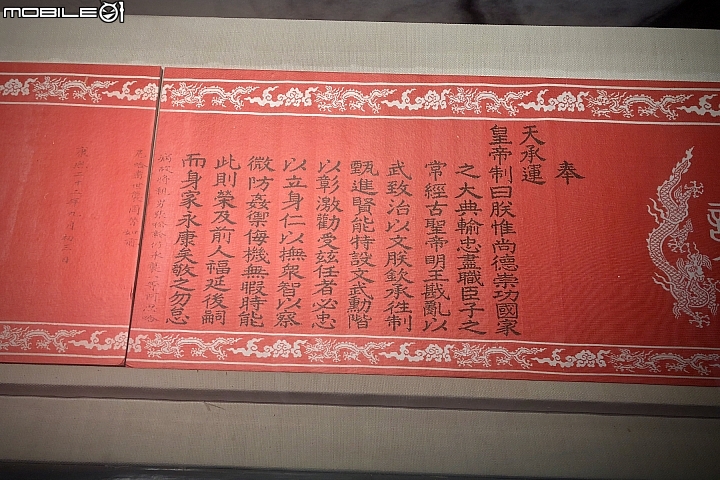 MOBILE01
奉
天承運
皇帝制曰朕惟尚德崇功國家
之大典輸忠盡職臣子之
常經古聖帝明王戡亂以
武致治以文朕欽承往制
甄進賢能特設文武勳階
以彰激勸受茲任者必忠
以立身仁以撫衆智以察
微防姦禦侮機無暇時能
此則榮及前人福延後嗣
而身家永康矣敬之勿怠